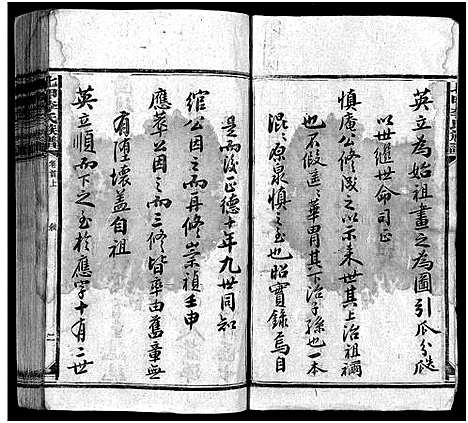 七甲李氏族譜
英立為始祖畫之為圖引瓜分瓞
以世繼世命司正
慎庵公修成之以示来世其上治祖禰
也不假遠之華胄其下治子孫也一本
混原泉慎之至也昭實錄焉自
是而後正德十年九世同知
綰公因之而再修崇禎壬申
應華公因之而三修皆率由舊章無
有堕壞盖自祖
英立順而下之至於應字十有二世
七甲李氏族譜
卷首上
敘
二